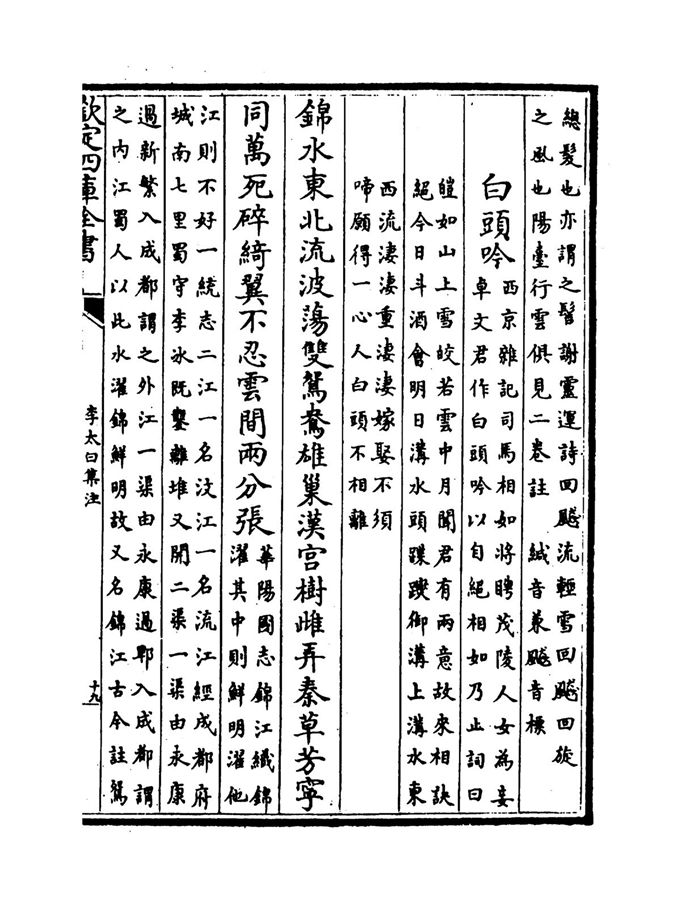 總髮也亦謂之髻謝靈運詩回飈流輕雪回飈回旋
之風也陽臺行雲俱見二卷註　緘音兼飈音標
白頭吟
西京雜記司馬相如將聘茂陵人女為妾
卓文君作白頭吟以自絕相如乃止詞曰
皚如山上雪皎若雲中月聞君有兩意故來相訣
絕今日斗酒會明日溝水頭蹀躞御溝上溝水東
西流淒淒重淒淒嫁娶不須
啼願得一心人白頭不相離
錦水東北流波蕩雙鴛鴦雄巢漢宮樹雌弄秦草芳寧
同萬死碎綺翼不忍雲間兩分張
華陽國志錦江織錦
濯其中則鮮明濯他
江則不好一統志二江一名汶江一名流江經成都府
城南七里蜀守李冰既鑿離堆又開二渠一渠由永康
過新繁入成都謂之外江一渠由永康過郫入成都謂
之内江蜀人以此水濯錦鮮明故又名錦江古今註鴛
欽定四庫全書
李太白集注
十九